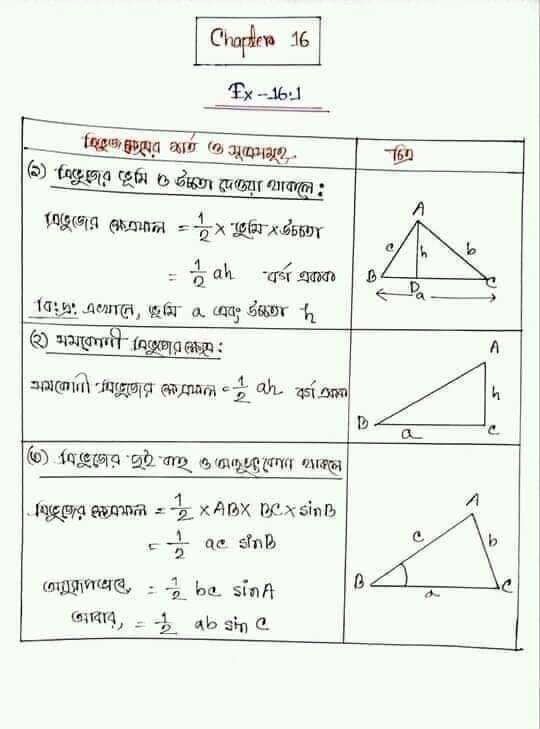 Chapter 16
Ex-16.1
ত্রিভুজক্ষেত্রের শর্ত ও সূত্রসমূহ
চিত্র
(১) ত্রিভুজের ভূমি ও উচ্চতা দেওয়া থাকলে:
ত্রিভুজের ক্ষেত্রফল = 1/2 × ভূমি × উচ্চতা
= 1/2 ah বর্গ একক
বি:দ্র: এখানে, ভূমি a এবং উচ্চতা h
A
c h b
B D C
a
(২) সমকোণী ত্রিভুজের ক্ষেত্রে:
সমকোণী ত্রিভুজের ক্ষেত্রফল = 1/2 ah বর্গ একক
A
h
B a C
(৩) ত্রিভুজের দুই বাহু ও অন্তর্ভুক্ত কোণ থাকলে
ত্রিভুজের ক্ষেত্রফল = 1/2 × AB × BC × sinB
= 1/2 ac sinB
অনুরূপভাবে, = 1/2 bc sinA
আবার, = 1/2 ab sin C
A
c b
B a C